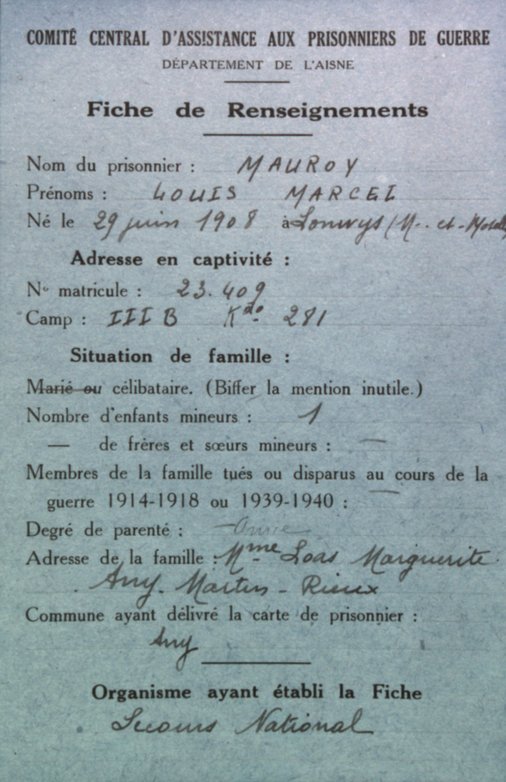 COMITÉ CENTRAL D'ASSISTANCE AUX PRISONNIERS DE GUERRE
DÉPARTEMENT DE L'AISNE
Fiche de Renseignements
Nom du prisonnier : MAUROY
Prénoms : LOUIS MARCEL
Né le 29 juin 1908 à Lonwys (M.-et-Moselle
Adresse en captivité :
No matricule : 23.409
Camp : III B Kdo 281
Situation de famille :
Marié ou célibataire. (Biffer la mention inutile.)
Nombre d'enfants mineurs : 1
— de frères et sœurs mineurs : —
Membres de la famille tués ou disparus au cours de la
guerre 1914-1918 ou 1939-1940 : —
Degré de parenté :
Adresse de la famille : Mme Loas Marguerite
Any-Martin-Rieux
Commune ayant délivré la carte de prisonnier :
Any
Organisme ayant établi la Fiche
Secours National